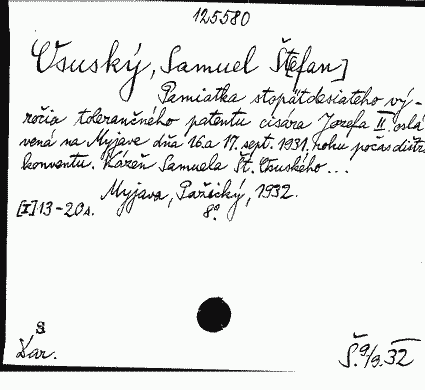 125580
Osuský, Samuel Št[efan]
Pamiatka stopäťdesiateho vý-
ročia tolerančného patentu cisára Jozefa II. oslá
vená na Myjave dňa 16.a 17. sept. 1931. roku počas dištr
konventu. Kázeň Samuela Št. Osuského...
Myjava, Pažický, 1932.
[I] 13-20s. 8°.
S
Dar.
Š. 9/9. 32